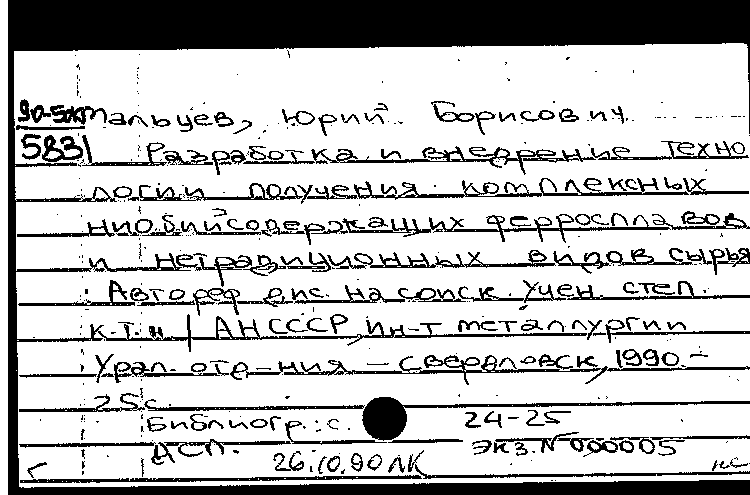 90-5октМальцев, Юрий Борисович
5831 Разработка и внедрение техно
логии получения комплексных
ниобийсодержащих ферросплавов
и нетрадиционных видов сырья
: Автореф дис. на соиск. учен. степ.
к.т.н / АНСССР, ин-т металлургии
Урал. отд-ния – Свердловск, 1990.–
25с
Библиогр.: с. 24-25
ДСП. экз. № 000005
26.10.90 ЛК
Г нс